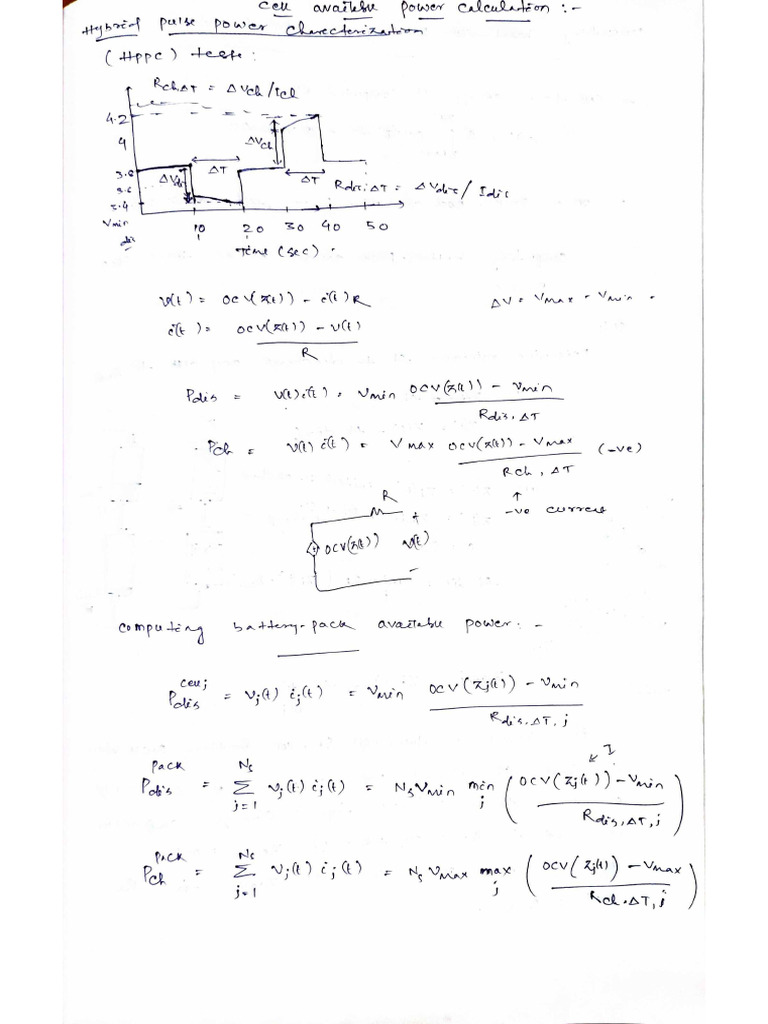 Cell available power calculation :-
Hybrid pulse power charecterization
(HPPC) test:
R_ch,ΔT = ΔV_ch/I_ch
4.2
4
ΔV_ch
3.8
3.6
3.4
V_min
dis
ΔV_dis
ΔT
ΔT
R_dis,ΔT = ΔV_dis / I_dis
10 20 30 40 50
Time (sec).
v(t) = OCV(z(t)) - i(t)R
ΔV = V_max - V_min.
i(t) = (OCV(z(t)) - v(t)) / R
P_dis = v(t)i(t) = V_min (OCV(z(t)) - V_min) / R_dis,ΔT
P_ch = v(t) i(t) = V_max (OCV(z(t)) - V_max) / R_ch,ΔT (-ve)
↑
-ve current
R
+
OCV(z(t)) v(t)
-
Computing battery-pack available power: -
P_dis^cell,j = v_j(t) i_j(t) = V_min (OCV(z_j(t)) - V_min) / R_dis,ΔT,j
I
P_dis^pack = Σ_{j=1}^{N_s} v_j(t) i_j(t) = N_s V_min min_j ( (OCV(z_j(t)) - V_min) / R_dis,ΔT,j )
P_ch^pack = Σ_{j=1}^{N_s} v_j(t) i_j(t) = N_s V_max max_j ( (OCV(z_j(t)) - V_max) / R_ch,ΔT,j )